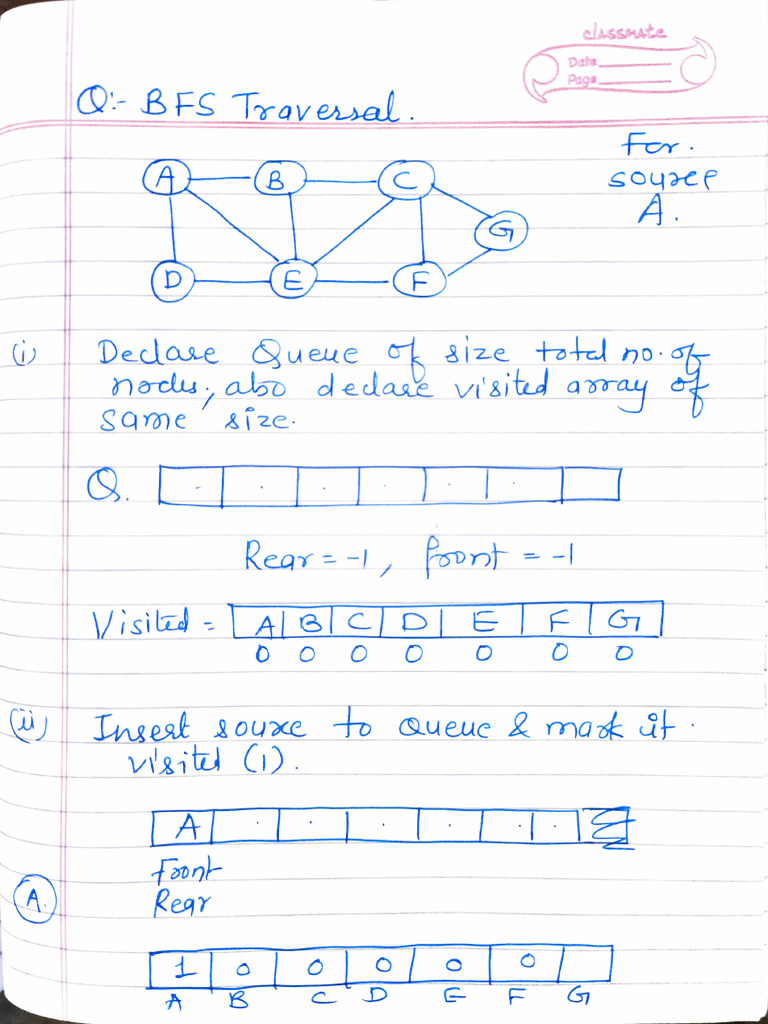 classmate
Date
Page
Q:- BFS Traversal.
For.
source
A.
A B C
G
D E F
(i) Declare Queue of size total no. of
nodes, also declare visited array of
same size.
Q.
Rear = -1, front = -1
Visited = A B C D E F G
0 0 0 0 0 0 0
(ii) Insert source to Queue & mark it.
visited (1).
A
Front
A.
Rear
1 0 0 0 0 0
A B C D E F G